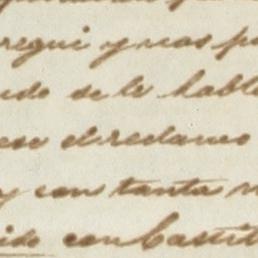 regui y nos p
ndo se le habl
ese el reclamo
y con tanta
ido con Castil